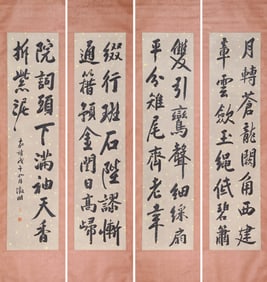 月轉蒼龍闕角西建
章雲歛玉繩低碧簫
雙引鸞聲細綵扇
平分雉尾齊老幸
綴行班石陛謬慚
通籍預金閨日高歸
院詞頭下滿袖天香
拆紫泥
嘉靖戊子 月徵明